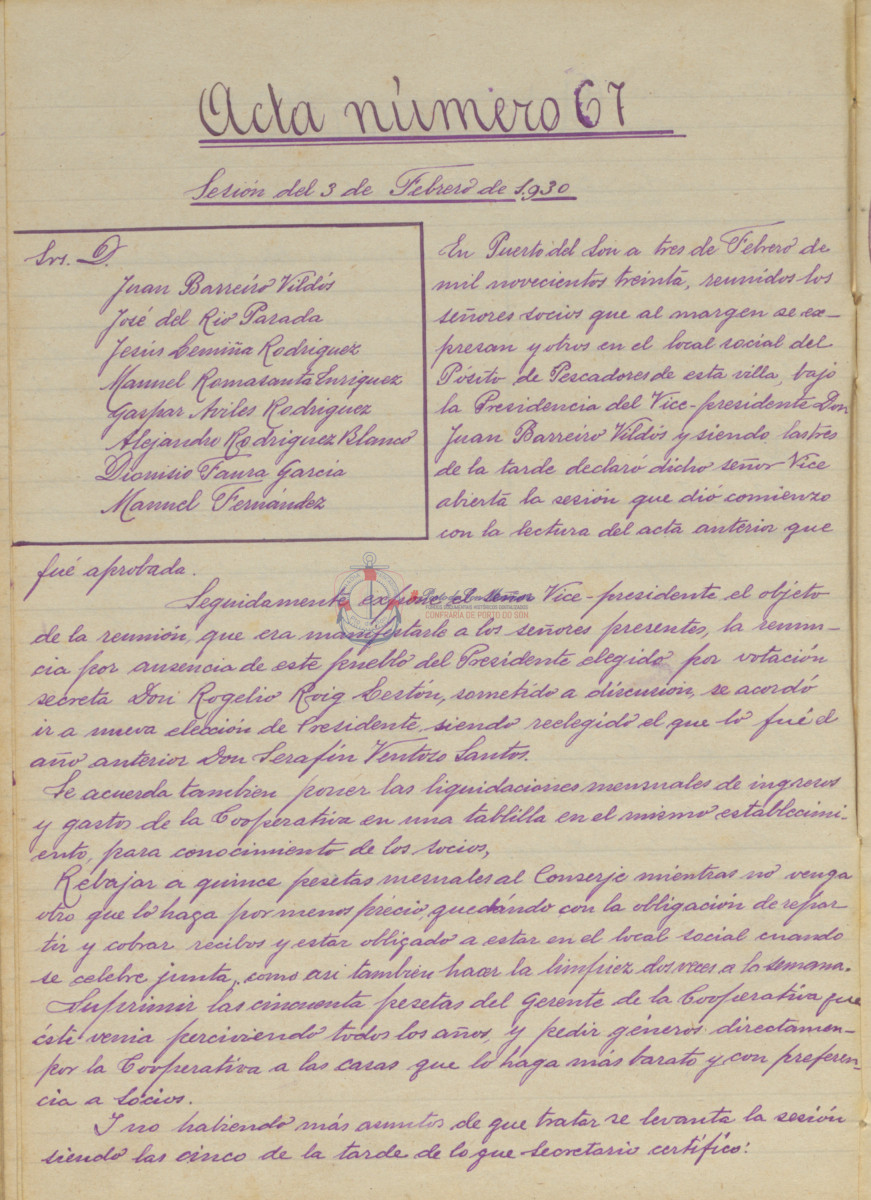 Acta número 67
Sesión del 3 de Febrero de 1930
Srs. D.
Juan Barreiro Vildós
José del Rio Parada
Jesús Lemiña Rodriguez
Manuel Romasanta Enriquez
Gaspar Aviles Rodriguez
Alejandro Rodriguez Blanco
Dionisio Faura Garcia
Manuel Fernández
En Puerto del Son a tres de Febrero de
mil novecientos treinta, reunidos los
señores socios que al margen se ex-
presan y otros en el local social del
Pósito de Pescadores de esta villa, bajo
la Presidencia del Vice-presidente Don
Juan Barreiro Vildós y siendo las tres
de la tarde declaró dicho señor Vice
abierta la sesión que dió comienzo
con la lectura del acta anterior que
fué aprobada.
Seguidamente expone el señor Vice-presidente el objeto
FONDOS DOCUMENTAIS HISTÓRICOS DIXITALIZADOS
CONFRARÍA DE PORTO DO SON
de la reunión, que era manifestarle a los señores presentes, la renun-
cia por ausencia de este pueblo del Presidente elegido por votación
secreta Don Rogelio Roig Lestón, sometido a discusión, se acordó
ir a nueva elección de Presidente, siendo reelegido el que lo fué el
año anterior Don Serafín Ventoso Santos.
Se acuerda tambien poner las liquidaciones mensuales de ingresos
y gastos de la Cooperativa en una tablilla en el mismo establecimi-
ento, para conocimiento de los socios,
Rebajar a quince pesetas mesnales al Conserje mientras no venga
otro que lo haga por menos précio, quedándo con la obligación de repar-
tir y cobrar recibos y estar obligado a estar en el local social cuando
se celebre junta, como asi también hacer la limpiez dos veces a la semana.
Suprimir las cincuenta pesetas del Gerente de la Cooperativa que
éste venia perciviendo todos los años, y pedir géneros directamen-
por la Cooperativa a las casas que lo haga más barato y con preferen-
cia a socios.
Y no habiendo más asuntos de que tratar se levanta la sesión
siendo las cinco de la tarde de lo que secretario certífico: